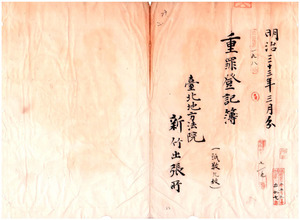 明治三十三年三月分
重罪登記簿
(紙数九枚)
臺北地方法院
新竹出張所